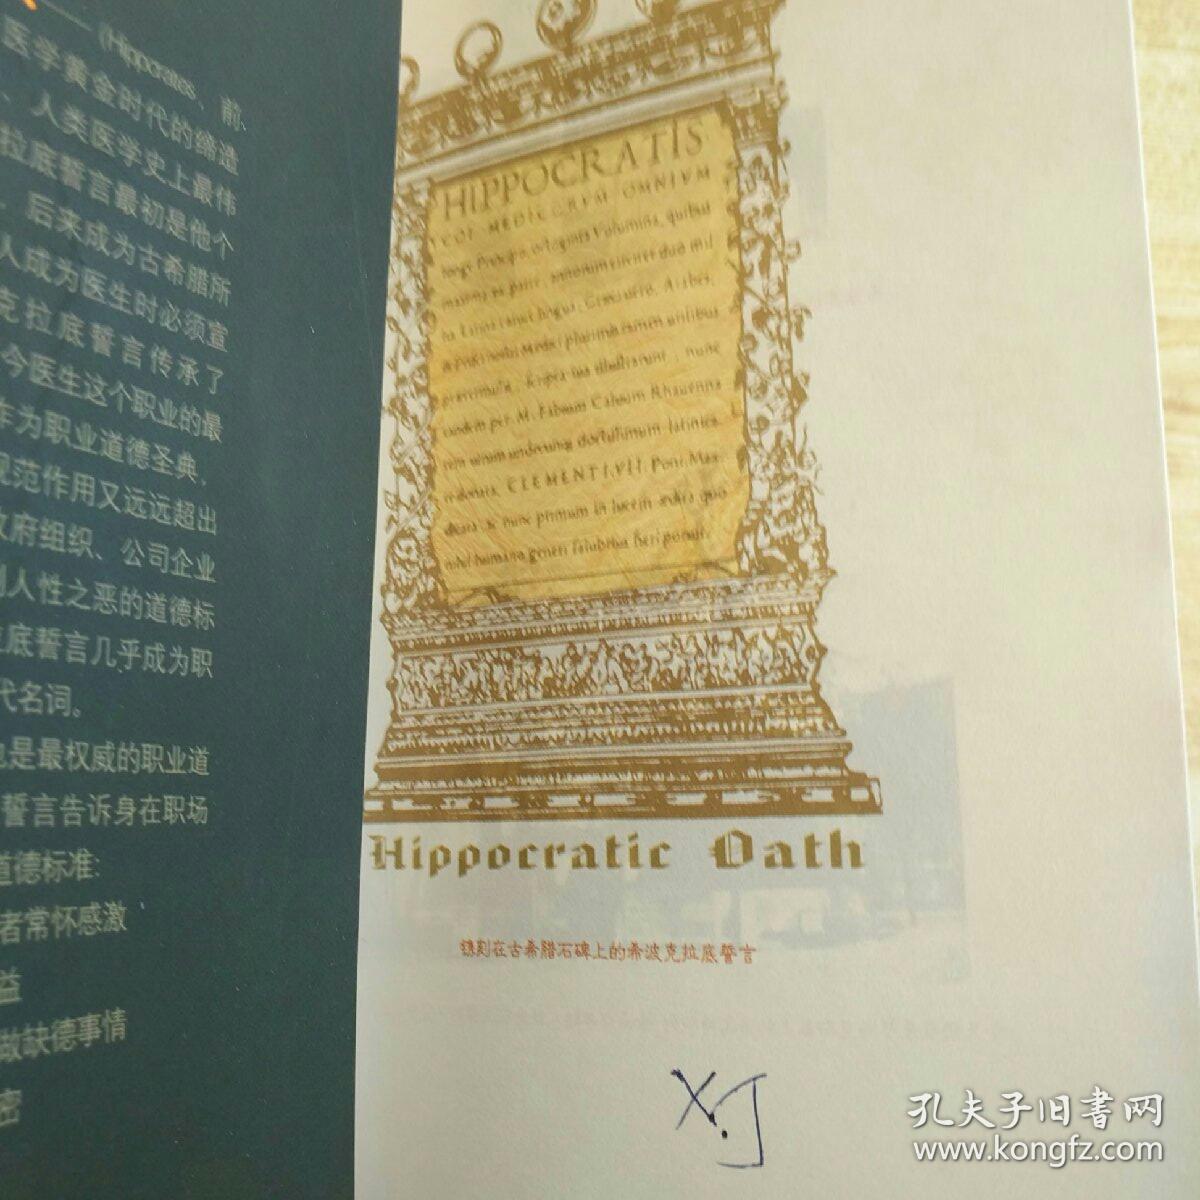 (Hippocrates、前
医学黄金时代的缔造
、人类医学史上最伟
拉底誓言最初是他个
、后来成为古希腊所
人成为医生时必须宣
克拉底誓言传承了
今医生这个职业的最
作为职业道德圣典，
规范作用又远远超出
政府组织、公司企业
人性之恶的道德标
底誓言几乎成为职
代名词。
也是最权威的职业道
誓言告诉身在职场
道德标准:
者常怀感激
益
做缺德事情
密
HIPPOCRATIS
COI MEDICORVM OMNIVM
longe Principis, octoginta Volumina, quibus
maxima ex parte, annorum circiter duo mil
lia Latina caruit lingua, Graeci vero, Arabes,
& Prisci nostri Medici plurimis tamen utilibus
praetermissis, scripta sua illustrarunt, nunc
tandem per M. Fabium Calvum Rhauenna
tem virum undecunq doctissimum latinitate
donata, CLEMENTI VII. Pont. Max.
dicata, ac nunc primum in lucem aedita, quo
nihil humano generi salubrius fieri potuit.
Hippocratic Oath
镌刻在古希腊石碑上的希波克拉底誓言
孔夫子旧书网
www.kongfz.com